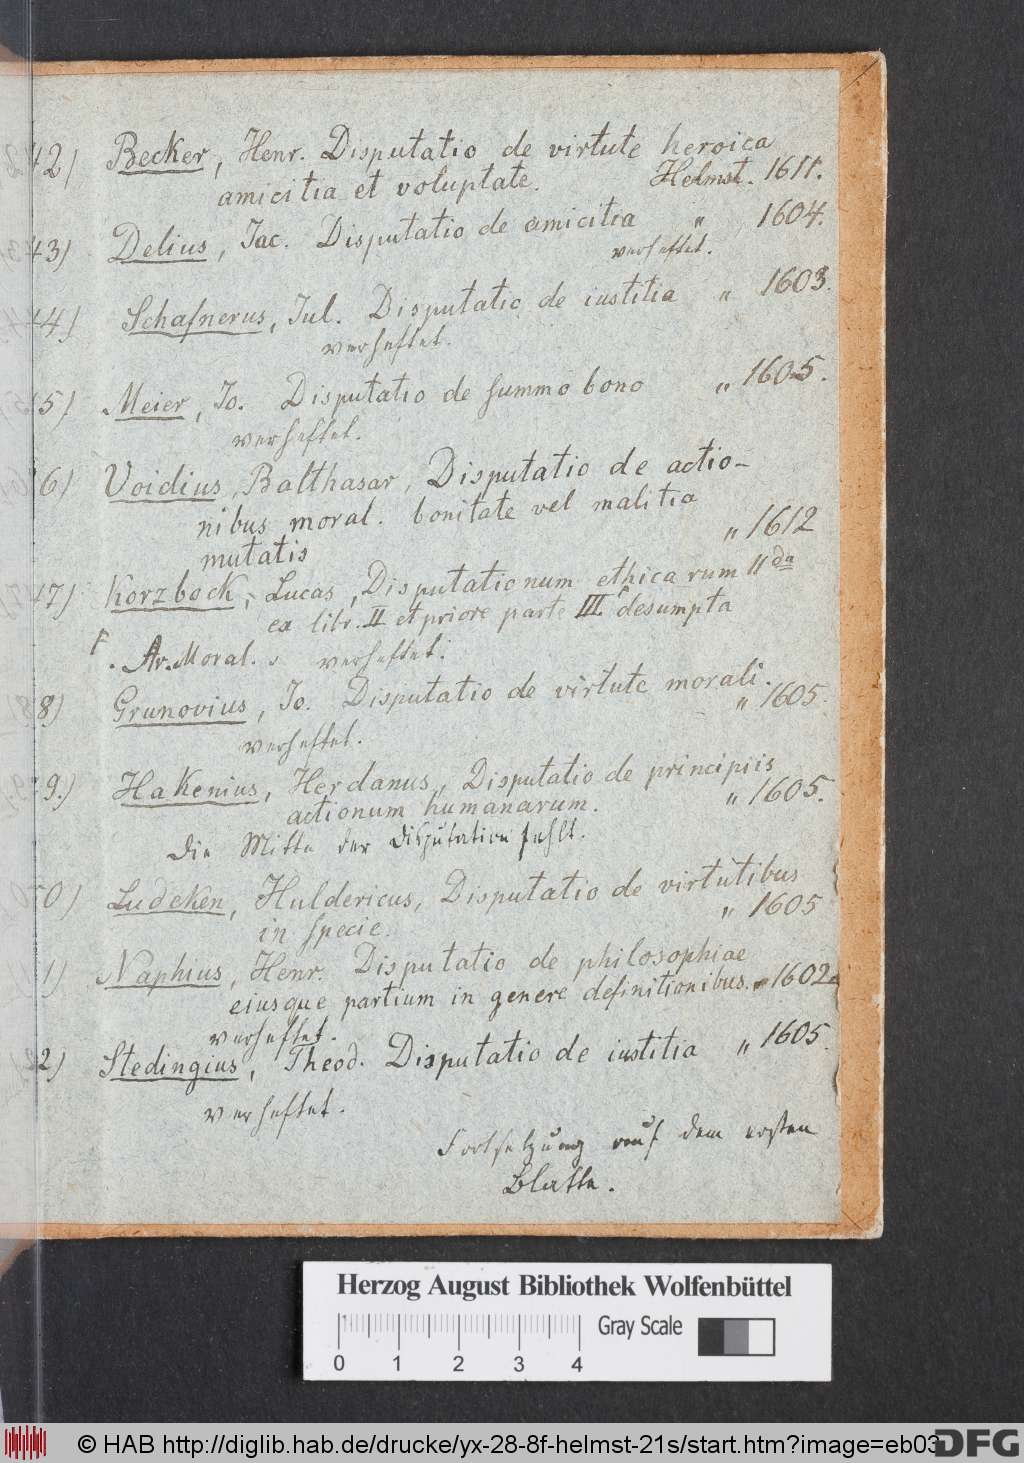 42) Becker, Henr. Disputatio de virtute heroica
amicitia et voluptate. Helmst. 1611.
43) Delius, Jac. Disputatio de amicitia " 1604.
verheftet.
44) Schafnerus, Jul. Disputatio de iustitia " 1603.
verheftet.
45) Meier, Jo. Disputatio de summo bono " 1605.
verheftet.
46) Voidius, Balthasar, Disputatio de actio-
nibus moral. bonitate vel malitia
mutatis " 1612
47) Korzbock, Lucas, Disputationum ethicarum 11da
ex libr. II et priore parte III desumpta
Ar. Moral. verheftet.
48) Grunovius, Jo. Disputatio de virtute morali.
" 1605.
verheftet.
49.) Hakenius, Herdanus, Disputatio de principiis
actionum humanarum. " 1605.
Die Mitte der Disputation fehlt.
50) Ludeken, Huldericus, Disputatio de virtutibus
in specie. " 1605
1) Naphius, Henr. Disputatio de philosophiae
eiusque partium in genere definitionibus. " 1602
verheftet.
2) Stedingius, Theod. Disputatio de iustitia " 1605.
verheftet.
Fortsetzung auf dem ersten
Blatte.
Herzog August Bibliothek Wolfenbüttel
Gray Scale
0 1 2 3 4
© HAB http://diglib.hab.de/drucke/yx-28-8f-helmst-21s/start.htm?image=eb03
DFG